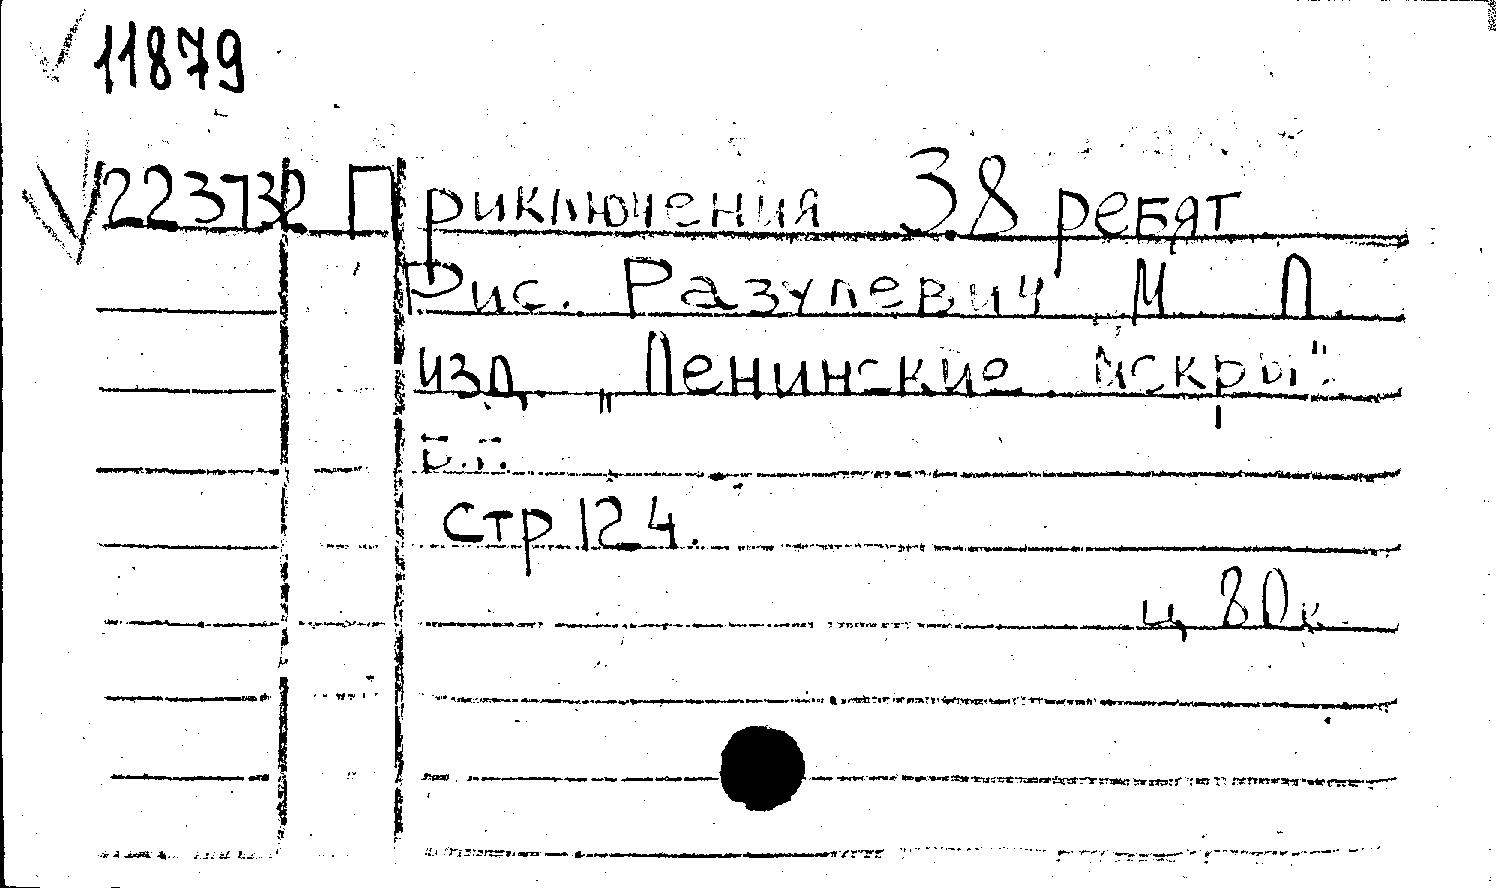 11879
223732 Приключения 38 ребят
Рис. Разулевич М Л.
изд „Ленинские искры".
Б.г.
стр 124.
ц 80к.